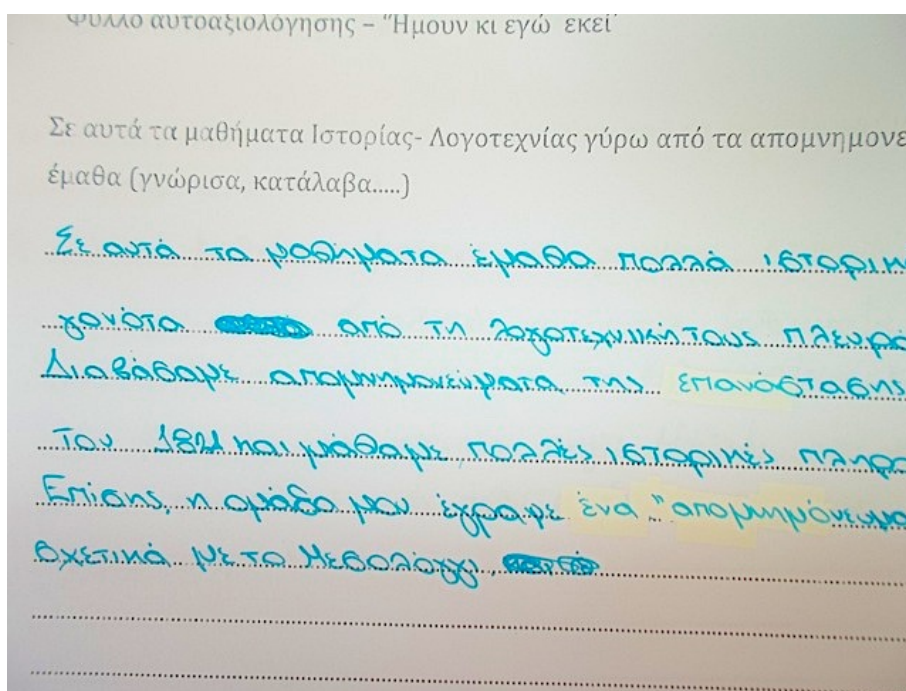 Φύλλο αυτοαξιολόγησης – "Ήμουν κι εγώ εκεί"
Σε αυτά τα μαθήματα Ιστορίας- Λογοτεχνίας γύρω από τα απομνημονε
έμαθα (γνώρισα, κατάλαβα.....)
Σε αυτά τα μαθήματα έμαθα πολλά ιστορικ
γονότα από τη λογοτεχνική τους πλευρά
Διαβάσαμε απομνημονεύματα της επανάστασης
του 1821 και μάθαμε πολλές ιστορικές πληρο
Επίσης, η ομάδα μου έγραψε ένα "απομνημόνευμα
σχετικά με το Μεσολόγγι,